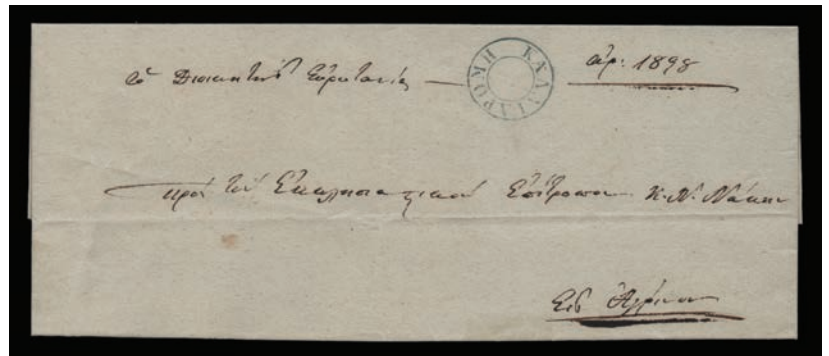 ὁ Διοικητὴς Εὐρυτανίας — ΚΑΛΛΙΔΡΟΜΗ ἀρ: 1898
πρὸς τὸν Ἐκκλησιαστικὸν Ἐπίτροπον Κ. Ν. Νάκην
Εἰς Ἀγρίνιον